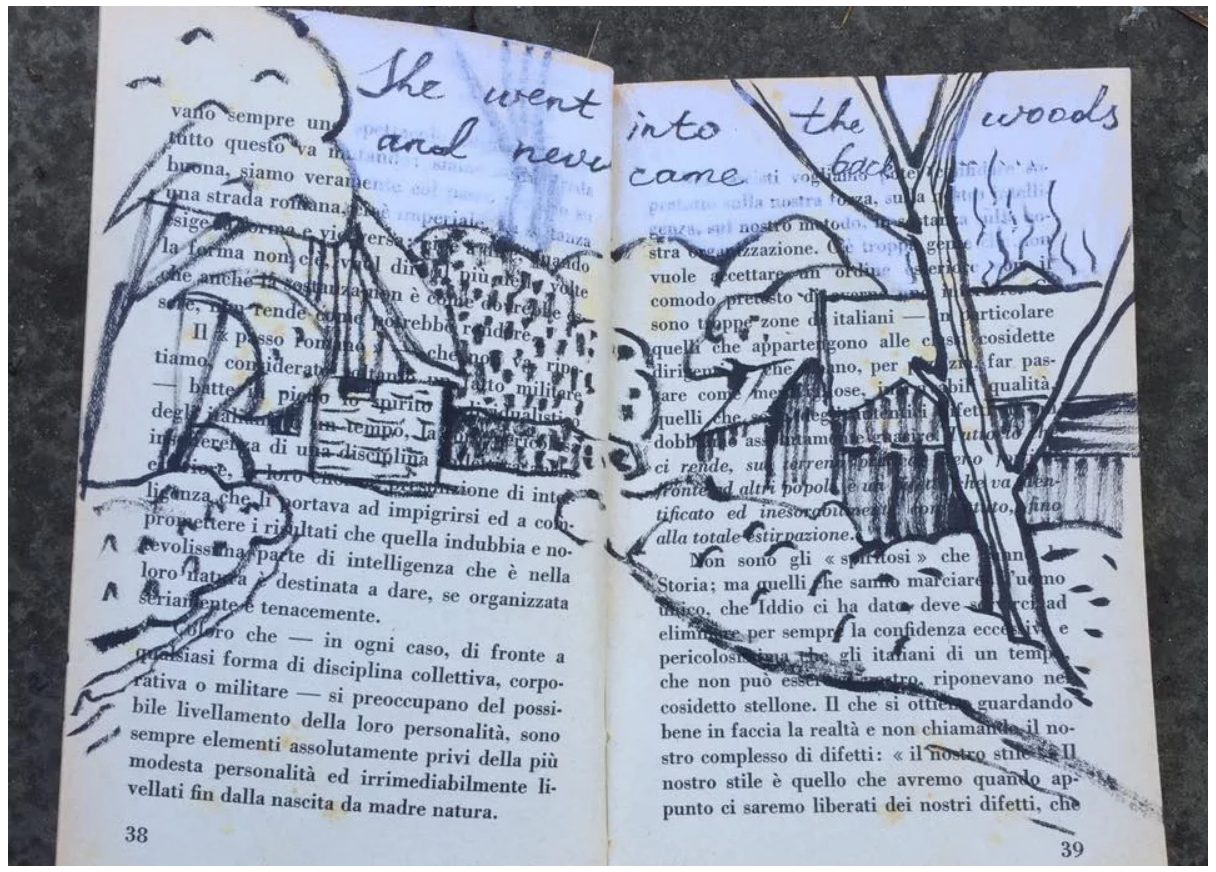 She went into the woods
and never came back
vano sempre
tutto questo va
buona, siamo veramente col
una strada romana, imperiale,
esige forma e
la forma non c'è, vuol dire più delle volte
che anche la sostanza non è come dovrebbe es-
sere, non rende come potrebbe rendere.
Il passo romano che non va ripe-
tiamo, considerato soltanto un fatto militare
— batte in pieno lo spirito
degli italiani di un tempo, la
di una disciplina
loro di intel-
ligenza che li portava ad impigrirsi ed a com-
promettere i risultati che quella indubbia e no-
tevolissima parte di intelligenza che è nella
loro natura è destinata a dare, se organizzata
seriamente e tenacemente.
Coloro che — in ogni caso, di fronte a
qualsiasi forma di disciplina collettiva, corpo-
rativa o militare — si preoccupano del possi-
bile livellamento della loro personalità, sono
sempre elementi assolutamente privi della più
modesta personalità ed irrimediabilmente li-
vellati fin dalla nascita da madre natura.
38
vogliamo
sulla nostra forza, sulla
sul nostro metodo, in sostanza sulla no-
stra organizzazione. C'è troppa gente che non
vuole accettare un ordine esteriore con il
comodo pretesto di
sono troppe zone di italiani — in particolare
quelli che appartengono alle classi cosidette
dirigenti che far pas-
sare come qualità,
quelli che sono degli autentici difetti
dobbiamo assolutamente guarire. Tutto
ci rende, sul terreno
fronte ad altri popoli, è un che va iden-
tificato ed inesorabilmente combattuto, fino
alla totale estirpazione.
Non sono gli « spiritosi » che fanno
Storia; ma quelli che sanno marciare. L'uomo
unico, che Iddio ci ha dato, deve servirci ad
eliminare per sempre la confidenza eccessiva e
pericolosissima che gli italiani di un tempo
che non può essere il nostro, riponevano nel
cosidetto stellone. Il che si ottiene guardando
bene in faccia la realtà e non chiamando il no-
stro complesso di difetti: « il nostro stile ». Il
nostro stile è quello che avremo quando ap-
punto ci saremo liberati dei nostri difetti, che
39